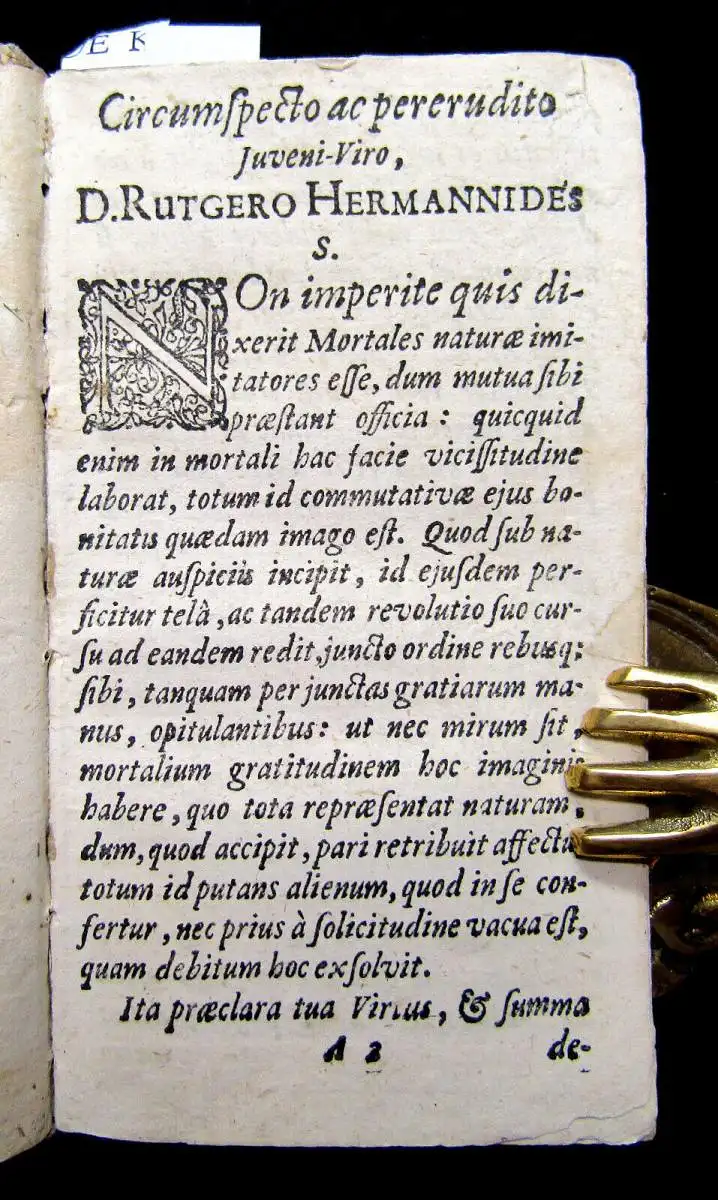 DE K
Circumſpecto ac pererudito
Juveni-Viro,
D. RUTGERO HERMANNIDES
S.
NOn imperite quis di-
xerit Mortales naturæ imi-
tatores eſſe, dum mutua ſibi
præſtant officia: quicquid
enim in mortali hac facie viciſſitudine
laborat, totum id commutativæ ejus bo-
nitatis quædam imago eſt. Quod ſub na-
turæ auſpiciis incipit, id ejuſdem per-
ficitur telâ, ac tandem revolutio ſuo cur-
ſu ad eandem redit, juncto ordine rebusq;
ſibi, tanquam per junctas gratiarum ma-
nus, opitulantibus: ut nec mirum ſit,
mortalium gratitudinem hoc imaginis
habere, quo tota repræſentat naturam,
dum, quod accipit, pari retribuit affectu
totum id putans alienum, quod in ſe con-
fertur, nec prius à ſolicitudine vacua eſt,
quam debitum hoc exſolvit.
Ita præclara tua Virtus, & ſumma
A 2 de-